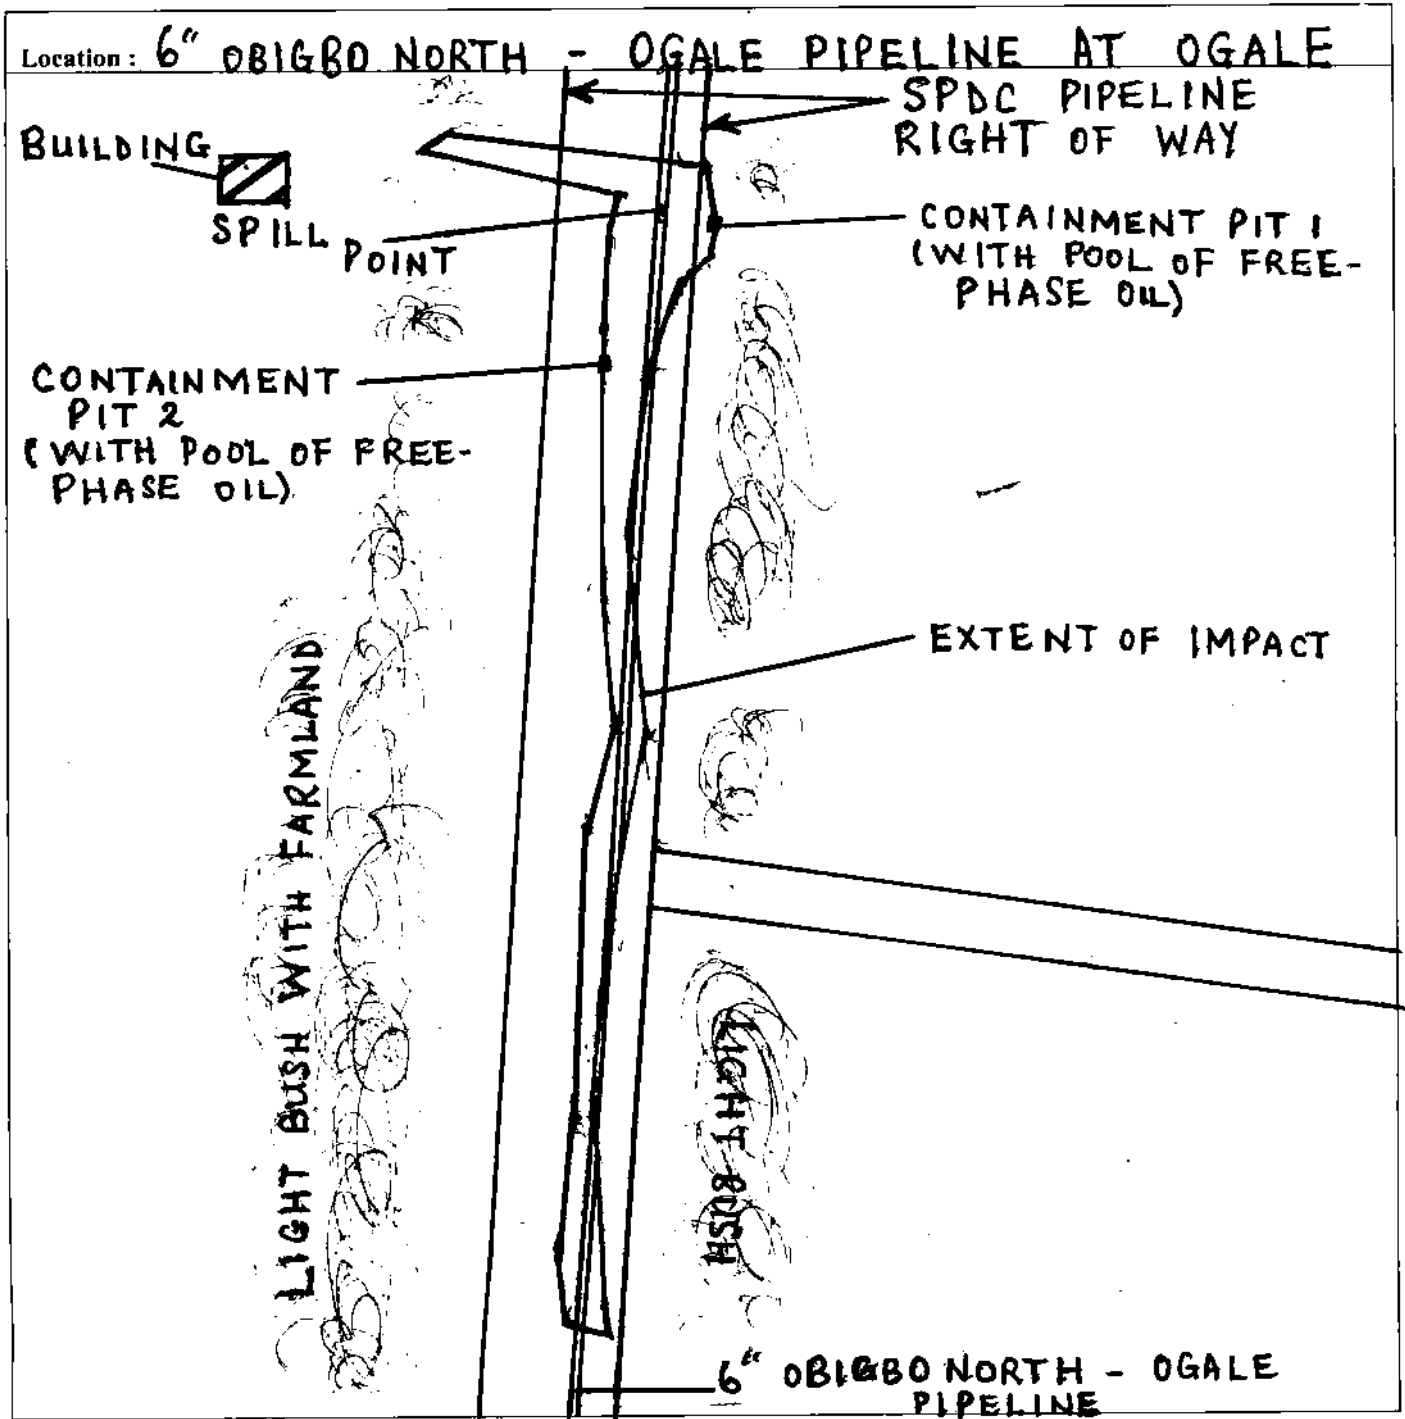 Location : 6" OBIGBO NORTH - OGALE PIPELINE AT OGALE
SPDC PIPELINE
RIGHT OF WAY
BUILDING
SPILL
POINT
CONTAINMENT PIT 1
(WITH POOL OF FREE-
PHASE OIL)
CONTAINMENT
PIT 2
(WITH POOL OF FREE-
PHASE OIL)
EXTENT OF IMPACT
LIGHT BUSH WITH FARMLAND
LIGHT BUSH
6" OBIGBO NORTH - OGALE
PIPELINE